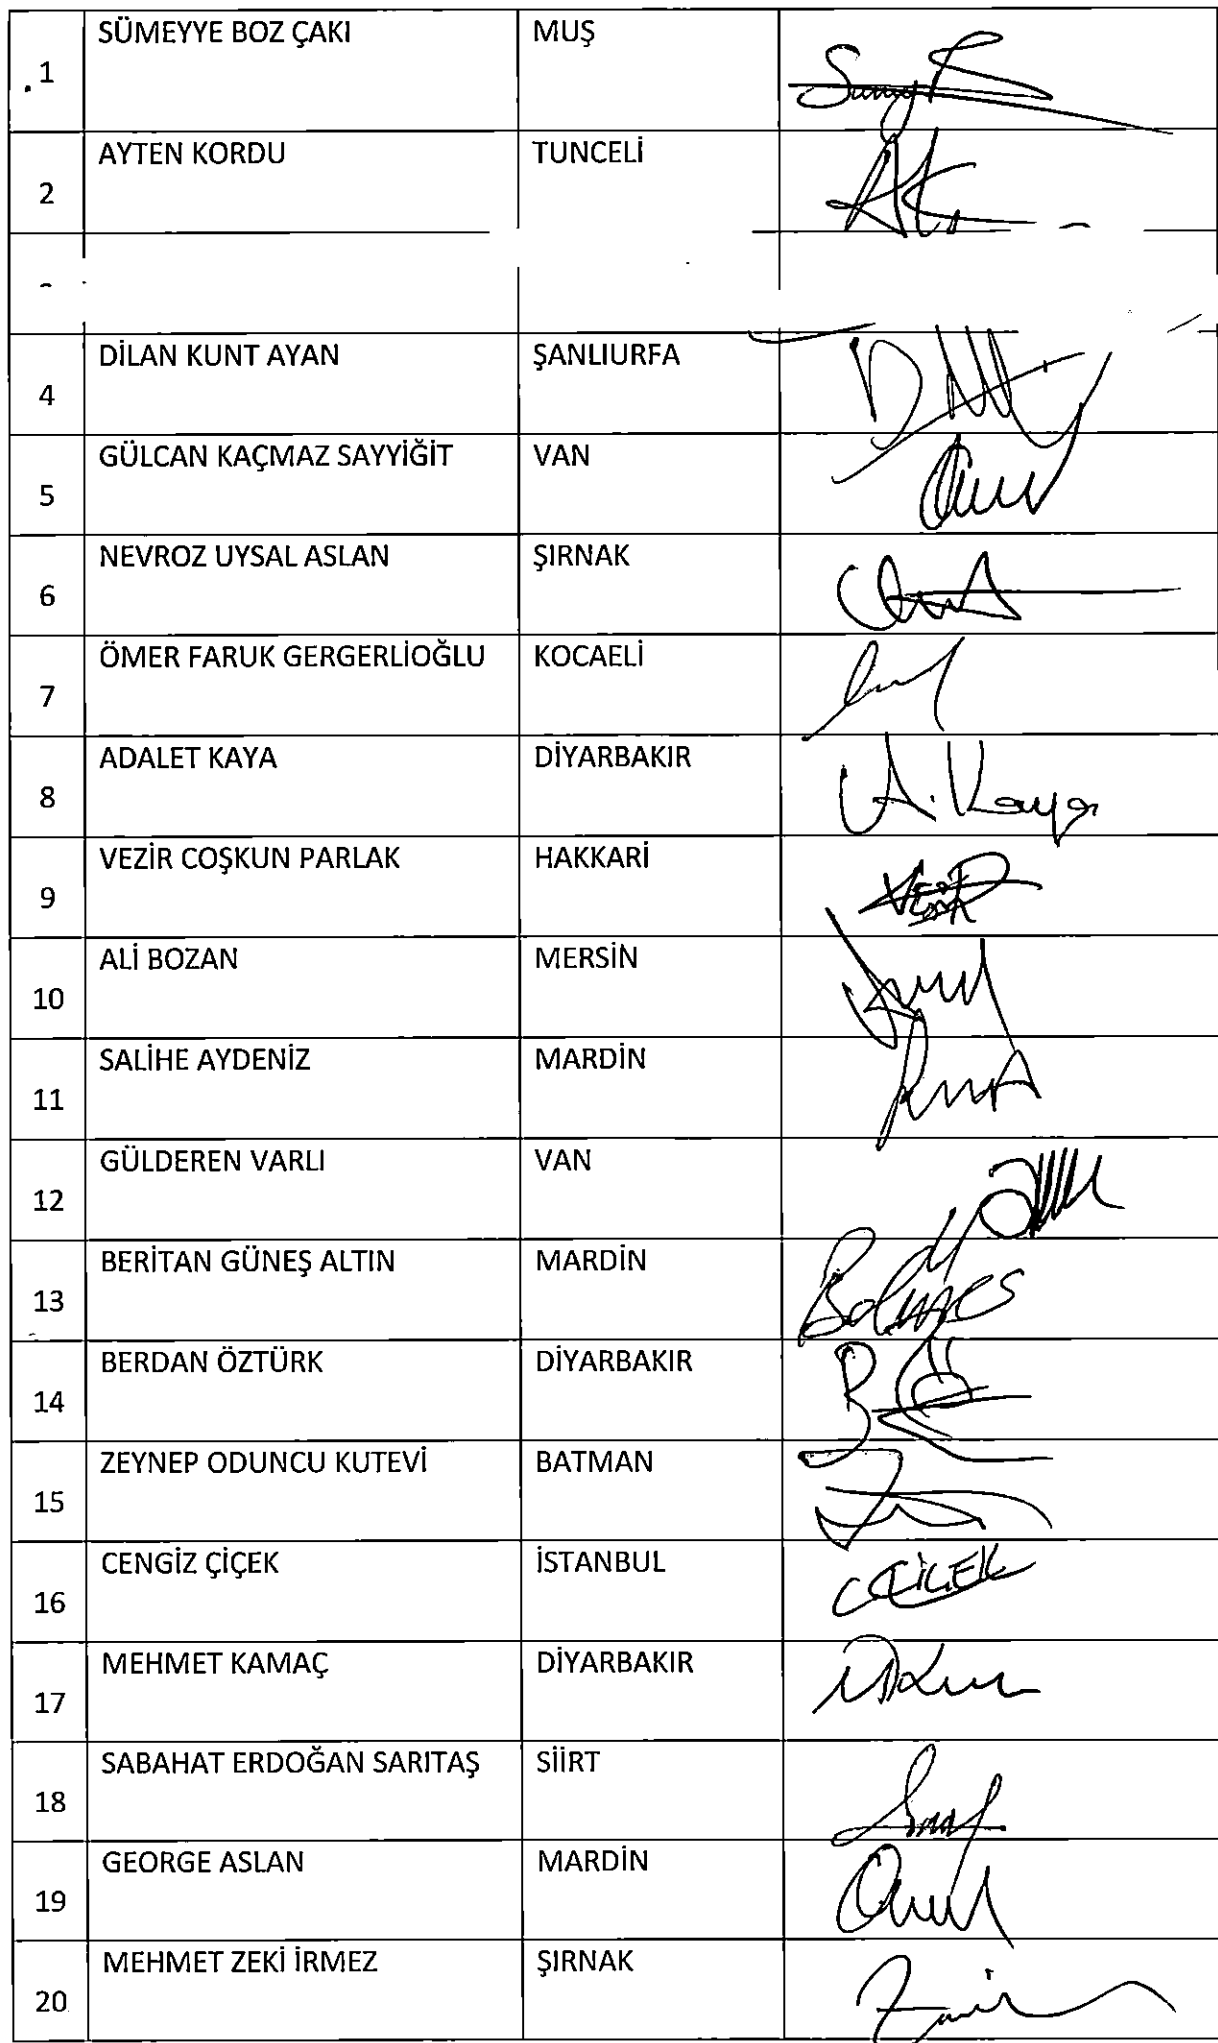 1 SÜMEYYE BOZ ÇAKI MUŞ
2 AYTEN KORDU TUNCELİ
4 DİLAN KUNT AYAN ŞANLIURFA
5 GÜLCAN KAÇMAZ SAYYİĞİT VAN
6 NEVROZ UYSAL ASLAN ŞIRNAK
7 ÖMER FARUK GERGERLİOĞLU KOCAELİ
8 ADALET KAYA DİYARBAKIR A. Kaya
9 VEZİR COŞKUN PARLAK HAKKARİ
10 ALİ BOZAN MERSİN
11 SALİHE AYDENİZ MARDİN
12 GÜLDEREN VARLI VAN
13 BERİTAN GÜNEŞ ALTIN MARDİN
14 BERDAN ÖZTÜRK DİYARBAKIR
15 ZEYNEP ODUNCU KUTEVİ BATMAN
16 CENGİZ ÇİÇEK İSTANBUL C ÇİÇEK
17 MEHMET KAMAÇ DİYARBAKIR
18 SABAHAT ERDOĞAN SARITAŞ SİİRT
19 GEORGE ASLAN MARDİN
20 MEHMET ZEKİ İRMEZ ŞIRNAK